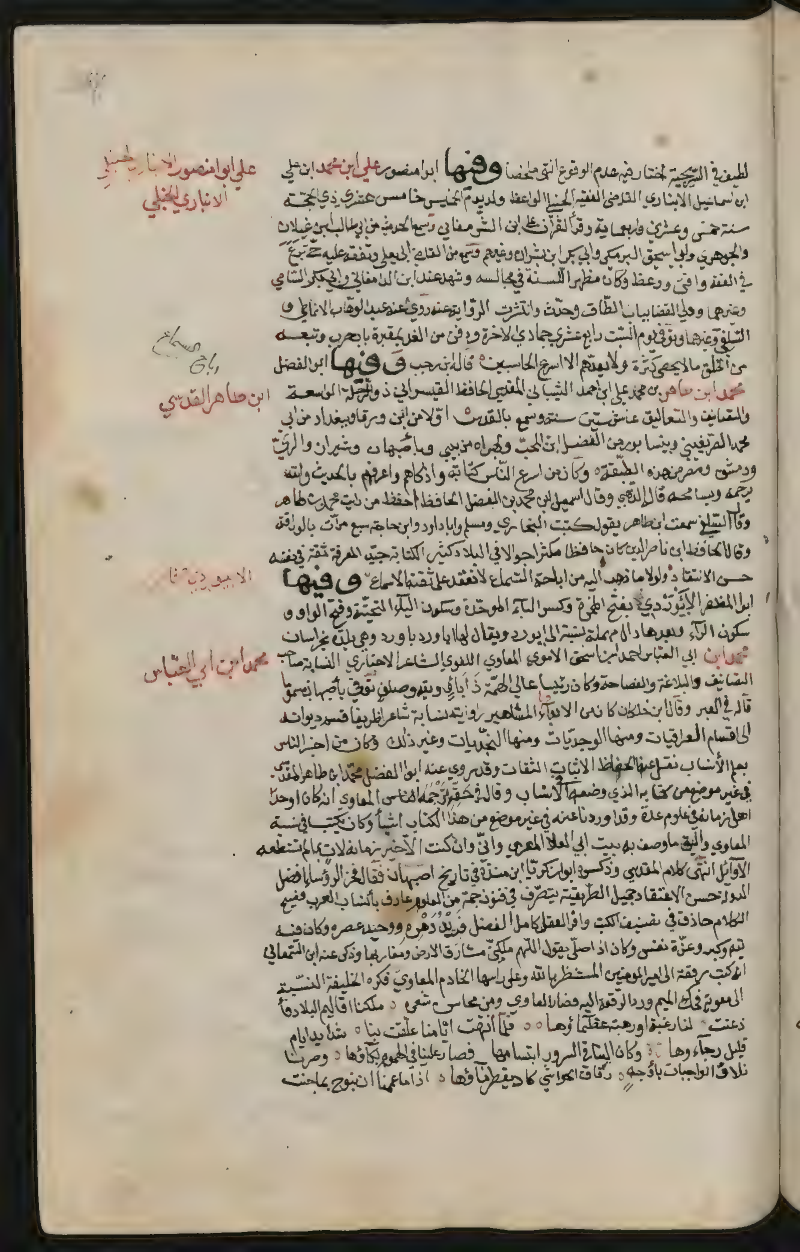 لطيفة في السريجية مختار فيه عدم الوقوع انتهى ملخصا وفيها ابو منصور علي ابن محمد ابن علي
ابن اسماعيل الانباري القاضي الفقيه الحنبلي الواعظ ولد يوم الخميس خامس عشري ذي الحجة
سنة خمس وعشرين واربعماية وقرأ القرآن على ابن الشرمقاني وسمع الحديث من ابي طالب ابن غيلان
والجوهري وابو اسحق البرمكي وابي بكر ابن بشران وغيرهم وسمع من القاضي ابي يعلى وتفقه عليه حتى برع
في الفقه وافتى ووعظ وكان مظهرا للسنة في مجالسه وشهد عند ابن الدامغاني وابي بكر الشامي
وغيرهما وولي القضا بباب الطاق وحدث وانتشرت الرواية عنه روى عنه عبد الوهاب الانماطي و
السلفي وغيرهما وتوفي يوم السبت رابع عشري جمادي لاخرة ودفن من الغد بمقبرة باب حرب وتبعه
من الخلق ما لا يحصى كثرة ولا يعدهم الا اسرع الحاسبين قاله ابن رجب وفيها ابن الفضل
محمد ابن طاهر بن محمد علي ابن احمد الشيباني المقدسي الحافظ القيسراني ذو الرحلة الواسعة
والتصانيف والتعاليق عاش ستين سنة وسمع بالقدس اولا من ابن ورقا وببغداد من ابي
محمد الصريفيني وبنيسابور من الفضل ابن المحب وبهراه من بيبي وباصبهان وشيراز والري
ودمشق ومصر من هذه الطبقة وكان من اسرع الناس كتابة واذكاهم واعرفهم بالحديث والله
يرحمه ويسامحه قاله الذهبي وقال اسمعيل ابن محمد بن الفضل الحافظ احفظ من رايت محمد بن طاهر
وقال السلفي سمعت ابن طاهر يقول كتبت البخاري ومسلم وابا داود وابن ماجة سبع مرات بالوراقة
وقال الحافظ ابن ناصر الدين كان حافظا مكثرا جوالا في البلاد كثير الكتابة جيد المعرفة ثقة في نفسه
حسن الانتقاد ولولا ما ذهب اليه من اباحة السماع لانعقد على ثقته الاجماع وفيها
ابو المظفر الابيوردي بفتح الهمزة وكسر الباء الموحدة وسكون الياء التحتية وفتح الواو و
سكون الراء وبعدها دال مهملة نسبة الى ابيورد ويقال لها ابا ورد باورد وهي بلدة بخراسان
محمد ابن ابي العباس احمد ابن اسحق الاموي المعاوي اللغوي الشاعر الاخباري النسابة صاحب
التصانيف والبلاغة والفصاحة وكان رئيسا عالي الهمة ذا بأو وتيه وصلف توفي باصبهان مسموما
قاله في العبر وقال ابن خلكان كان من الادباء المشاهير راوية نسابة شاعرا ظريفا قسم ديوانه
الى اقسام العراقيات ومنها الوجديات ومنها النجديات وغير ذلك وكان من اخبر الناس
بعلم الأنساب نقل عنه الحفاظ الاثبات الثقات وقد روى عنه ابو الفضل محمد ابن طاهر المقدسي
في غير موضع من كتابه الذي وضعه في الانساب وقال في حقه في ترجمة المعاوي انه كان اوحد
اهل زمانه في علوم عدة وقد اوردنا عنه في غير موضع من هذا الكتاب اشياء وكان يكتب في نسبه
المعاوي واليق ما وصف به بيت ابي العلاء المعري واني وان كنت الاخير زمانه لآت بما لم تستطعه
الأوائل انتهى كلام المقدسي وذكره ابو زكريا ابن مندة في تاريخ اصبهان فقال فخر الرؤسا افضل
الدولة حسن الاعتقاد جميل الطريقة متصرف في فنون جمة من العلوم عارف بانساب العرب فصيح
الكلام حاذق في تصنيف الكتب وافر العقل كامل الفضل فريد دهره ووحيد عصره وكان فيه
تيه وكبر وعزة نفس وكان اذا صلى يقول اللهم ملكني مشارق الارض ومغاربها وذكر عنه ابن السمعاني
انه كتب رقعة الى امير المومنين المستظهر بالله وعلى راسها الخادم المعاوي فكره الخليفة النسبة
الى معوية فحك الميم ورد الرقعة اليه فصار العاوي ومن محاسن شعره ملكنا اقاليم البلاد فأ
ذعنت لنا رغبة او رهبة عظماؤها فلما انتهت ايامنا علقت بنا شدايد ايام
قليل رجآءوها وكان الينا في السرور ابتسامها فصار علينا في الهموم بكاؤها وصرنا
نلاقي الواجبات بأوجه رقاق الحواشي كاد يقطر ماؤها اذا ما هممنا ان نبوح بما جنت
علي ابو امنصور الانباري الحنبلي
الانباري الحنبلي
ابن طاهر القدسي
الابيوردي
محمد ابن ابي العباس